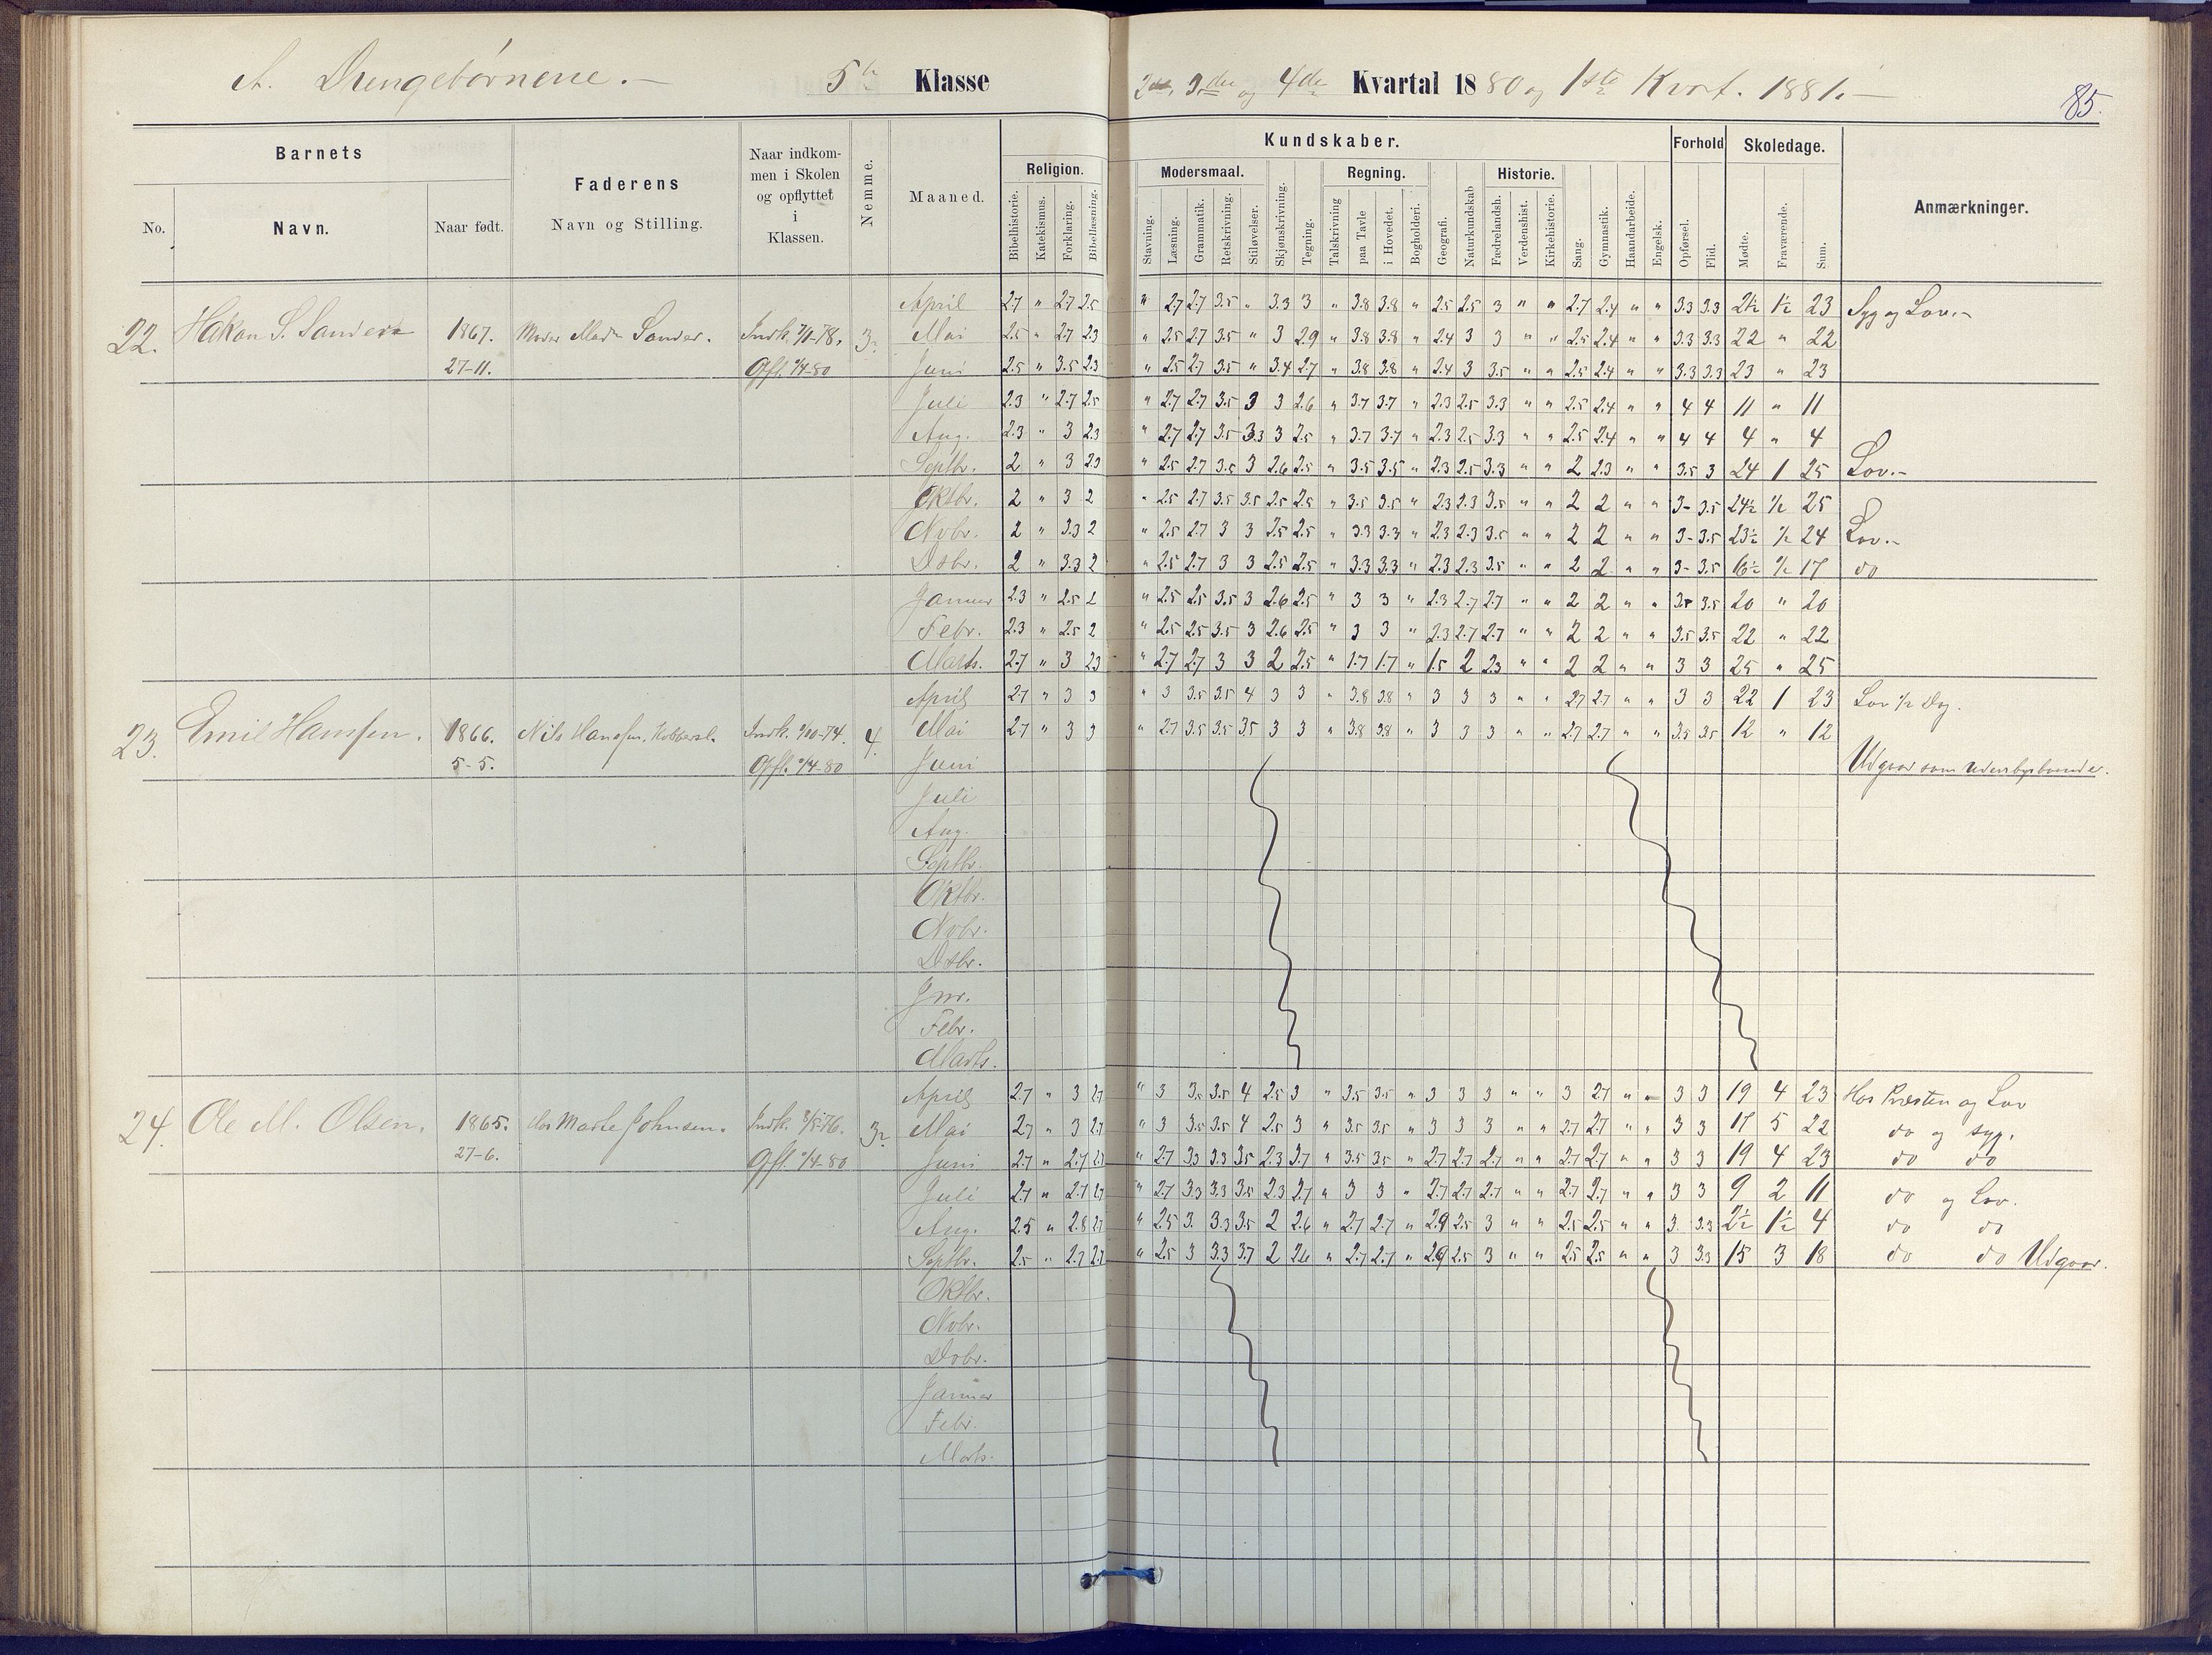 A. Drengebørnene.— 5te Klasse
2den, 3die og 4de Kvartal 1880 og 1ste Kvart. 1881.—
85.
Barnets
Faderens
Naar indkom-
men i Skolen
og opflyttet
i
Klassen.
Nemme.
Maaned.
Religion.
Kundskaber.
Modersmaal.
Regning.
Historie.
Forhold
Skoledage.
Anmærkninger.
No.
Navn.
Naar født.
Navn og Stilling.
Bibelhistorie.
Katekismus.
Forklaring.
Bibellæsning.
Stavning.
Læsning.
Grammatik.
Retskrivning.
Stiløvelser.
Skjønskrivning.
Tegning.
Talskrivning
paa Tavle
i Hovedet.
Bogholderi.
Geografi.
Naturkundskab
Fædrelandsh.
Verdenshist.
Kirkehistorie.
Sang.
Gymnastik.
Haandarbeide.
Engelsk.
Opførsel.
Flid.
Mødte.
Fraværende.
Sum.
April 2.7 " 2.7 2.5 " 2.7 2.7 3.5 " 3.3 3 " 3.8 3.8 " 2.5 2.5 3 " " 2.7 2.4 " " 3.3 3.3 21½ 1½ 23 Syg og Lov.—
22. Hakon S. 1867. Moder Mad. Sander. 3 Mai 2.5 " 2.7 2.3 " 2.5 2.7 3.5 " 3 2.9 " 3.8 3.8 " 2.4 3 3 " " 2.5 2.4 " " 3.3 3.3 22 " 22
27-11. Opfl. 1/4-80 Juni 2.5 " 3.5 2.3 " 2.5 2.7 3.5 " 3.4 2.7 " 3.8 3.8 " 2.4 3 3.5 " " 2.5 2.4 " " 3.3 3.3 23 " 23
Juli 2.3 " 2.7 2.5 " 2.7 2.7 3.5 3 3 2.6 " 3.7 3.7 " 2.3 2.5 3.3 " " 2.5 2.4 " " 4 4 11 " 11
Aug. 2.3 " 3 2.3 " 2.7 2.7 3.5 3.3 3 2.5 " 3.7 3.7 " 2.3 2.5 3.3 " " 2.5 2.4 " " 4 4 4 " 4
Septbr. 2 " 3 2.3 " 2.5 2.7 3.5 3 2.6 2.5 " 3.5 3.5 " 2.3 2.5 3.3 " " 2 2.3 " " 3.5 3 24 1 25 Lov.—
Oktbr. 2 " 3 2 " 2.5 2.7 3.5 3.5 2.5 2.5 " 3.5 3.5 " 2.3 2.3 3.5 " " 2 2 " " 3- 3.5 24½ ½ 25
Novbr. 2 " 3.3 2 " 2.5 2.7 3 3 2.5 2.5 " 3.3 3.3 " 2.3 2.3 3.5 " " 2 2 " " 3- 3.5 23½ ½ 24 Lov.—
Dsbr. 2 " 3.3 2 " 2.5 2.7 3 3 2.5 2.5 " 3.3 3.3 " 2.3 2.3 3.5 " " 2 2 " " 3- 3.5 16½ ½ 17 do
Januar 2.3 " 2.5 2 " 2.5 2.5 3.5 3 2.6 2.5 " 3 3 " 2.3 2.7 2.7 " " 2 2 " " 3.5 3.5 20 " 20
Febr. 2.3 " 2.5 2 " 2.5 2.5 3.5 3 2.6 2.5 " 3 3 " 2.3 2.7 2.7 " " 2 2 " " 3.5 3.5 22 " 22
Marts. 2.7 " 3 2.3 " 2.7 2.7 3 3 2 2.5 " 1.7 1.7 " 1.5 2 2.3 " " 2 2 " " 3 3 25 " 25
April 2.7 " 3 3 " 3 3.5 3.5 4 3 3 " 3.8 3.8 " 3 3 3 " " 2.7 2.7 " " 3 3 22 1 23 Lov ½ Dag.
23. Emil Hanssen. 1866. Nils Hanssen, 4. Mai 2.7 " 3 3 " 2.7 3.5 3.5 3.5 3 3 " 3.8 3.8 " 3 3 3 " " 2.7 2.7 " " 3.5 3.5 12 " 12
5-5. Opfl. 1/4-80 Juni Udgaar som udenbysboende.
Juli
Aug.
Septbr.
Oktbr.
Novbr.
Dsbr.
Jnr.
Febr.
Marts.
April 2.7 " 3 2.7 " 3 3.5 3.5 4 2.5 3 " 3.5 3.5 " 3 3 3 " " 3 2.7 " " 3 3 19 4 23 Hos Præsten og Lov
24. Ole M. Olsen. 1865. Hos Marte Johnsen. Indk. 3/5-76. 3 Mai 2.7 " 3 2.7 " 3 3.5 3.5 4 2.5 3 " 3.5 3.5 " 3 3 3 " " 2.7 2.7 " " 3 3 17 5 22 do og syg.
27-6. Opfl. 1/4-80 Juni 2.7 " 2.7 2.7 " 2.7 3.3 3.3 3.5 2.3 2.7 " 3.5 3.5 " 2.7 2.7 2.7 " " 2.7 2.7 " " 3 3 19 4 23 do do
Juli 2.7 " 2.7 2.7 " 2.7 3.3 3.3 3.5 2.3 2.7 " 3 3 " 2.7 2.7 2.7 " " 2.7 2.7 " " 3 3 9 2 11 do og Lov.
Aug. 2.5 " 2.8 2.7 " 2.5 3. 3.3 3.5 2 2.6 " 2.7 2.7 " 2.9 2.5 3 " " 2.5 2.5 " " 3 3.3 2½ 1½ 4 do do
Septbr. 2.5 " 2.7 2.7 " 2.5 3 3.3 3.7 2 2.6 " 2.7 2.7 " 2.9 2.5 3 " " 2.5 2.5 " " 3 3.3 15 3 18 do do Udgaar.
Oktbr.
Novbr.
Dsbr.
Januar
Febr.
Marts.